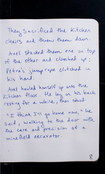 Then, sacrificed the kitchen
chairs and threw them down
Axel stacked them one on top
of the other and climbed up;
Petra's jump rope clutched in
his hand
Axel hauled himself up onto the
kitchen floor. He lay on his back
resting for a while, then stood
"I think I'll go home now," he
said, walking to the door with
the care and precision of a
minefield excavator.